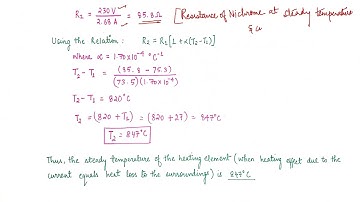 R₂ = 230 V / 2.68 A = 85.8 Ω [Resistance of Nichrome at steady temperature
Using the Relation : R₂ = R₁[1 + α(T₂-T₁)]
where α = 1.70x10⁻⁴ °C⁻¹
T₂-T₁ = (85.8 - 75.3) / (75.3)(1.70x10⁻⁴)
T₂-T₁ = 820°C
T₂ = (820 + T₁) = (820 + 27) = 847°C
T₂ = 847°C
Thus, the steady temperature of the heating element (when heating effect due to the
current equals heat loss to the surroundings) is 847°C